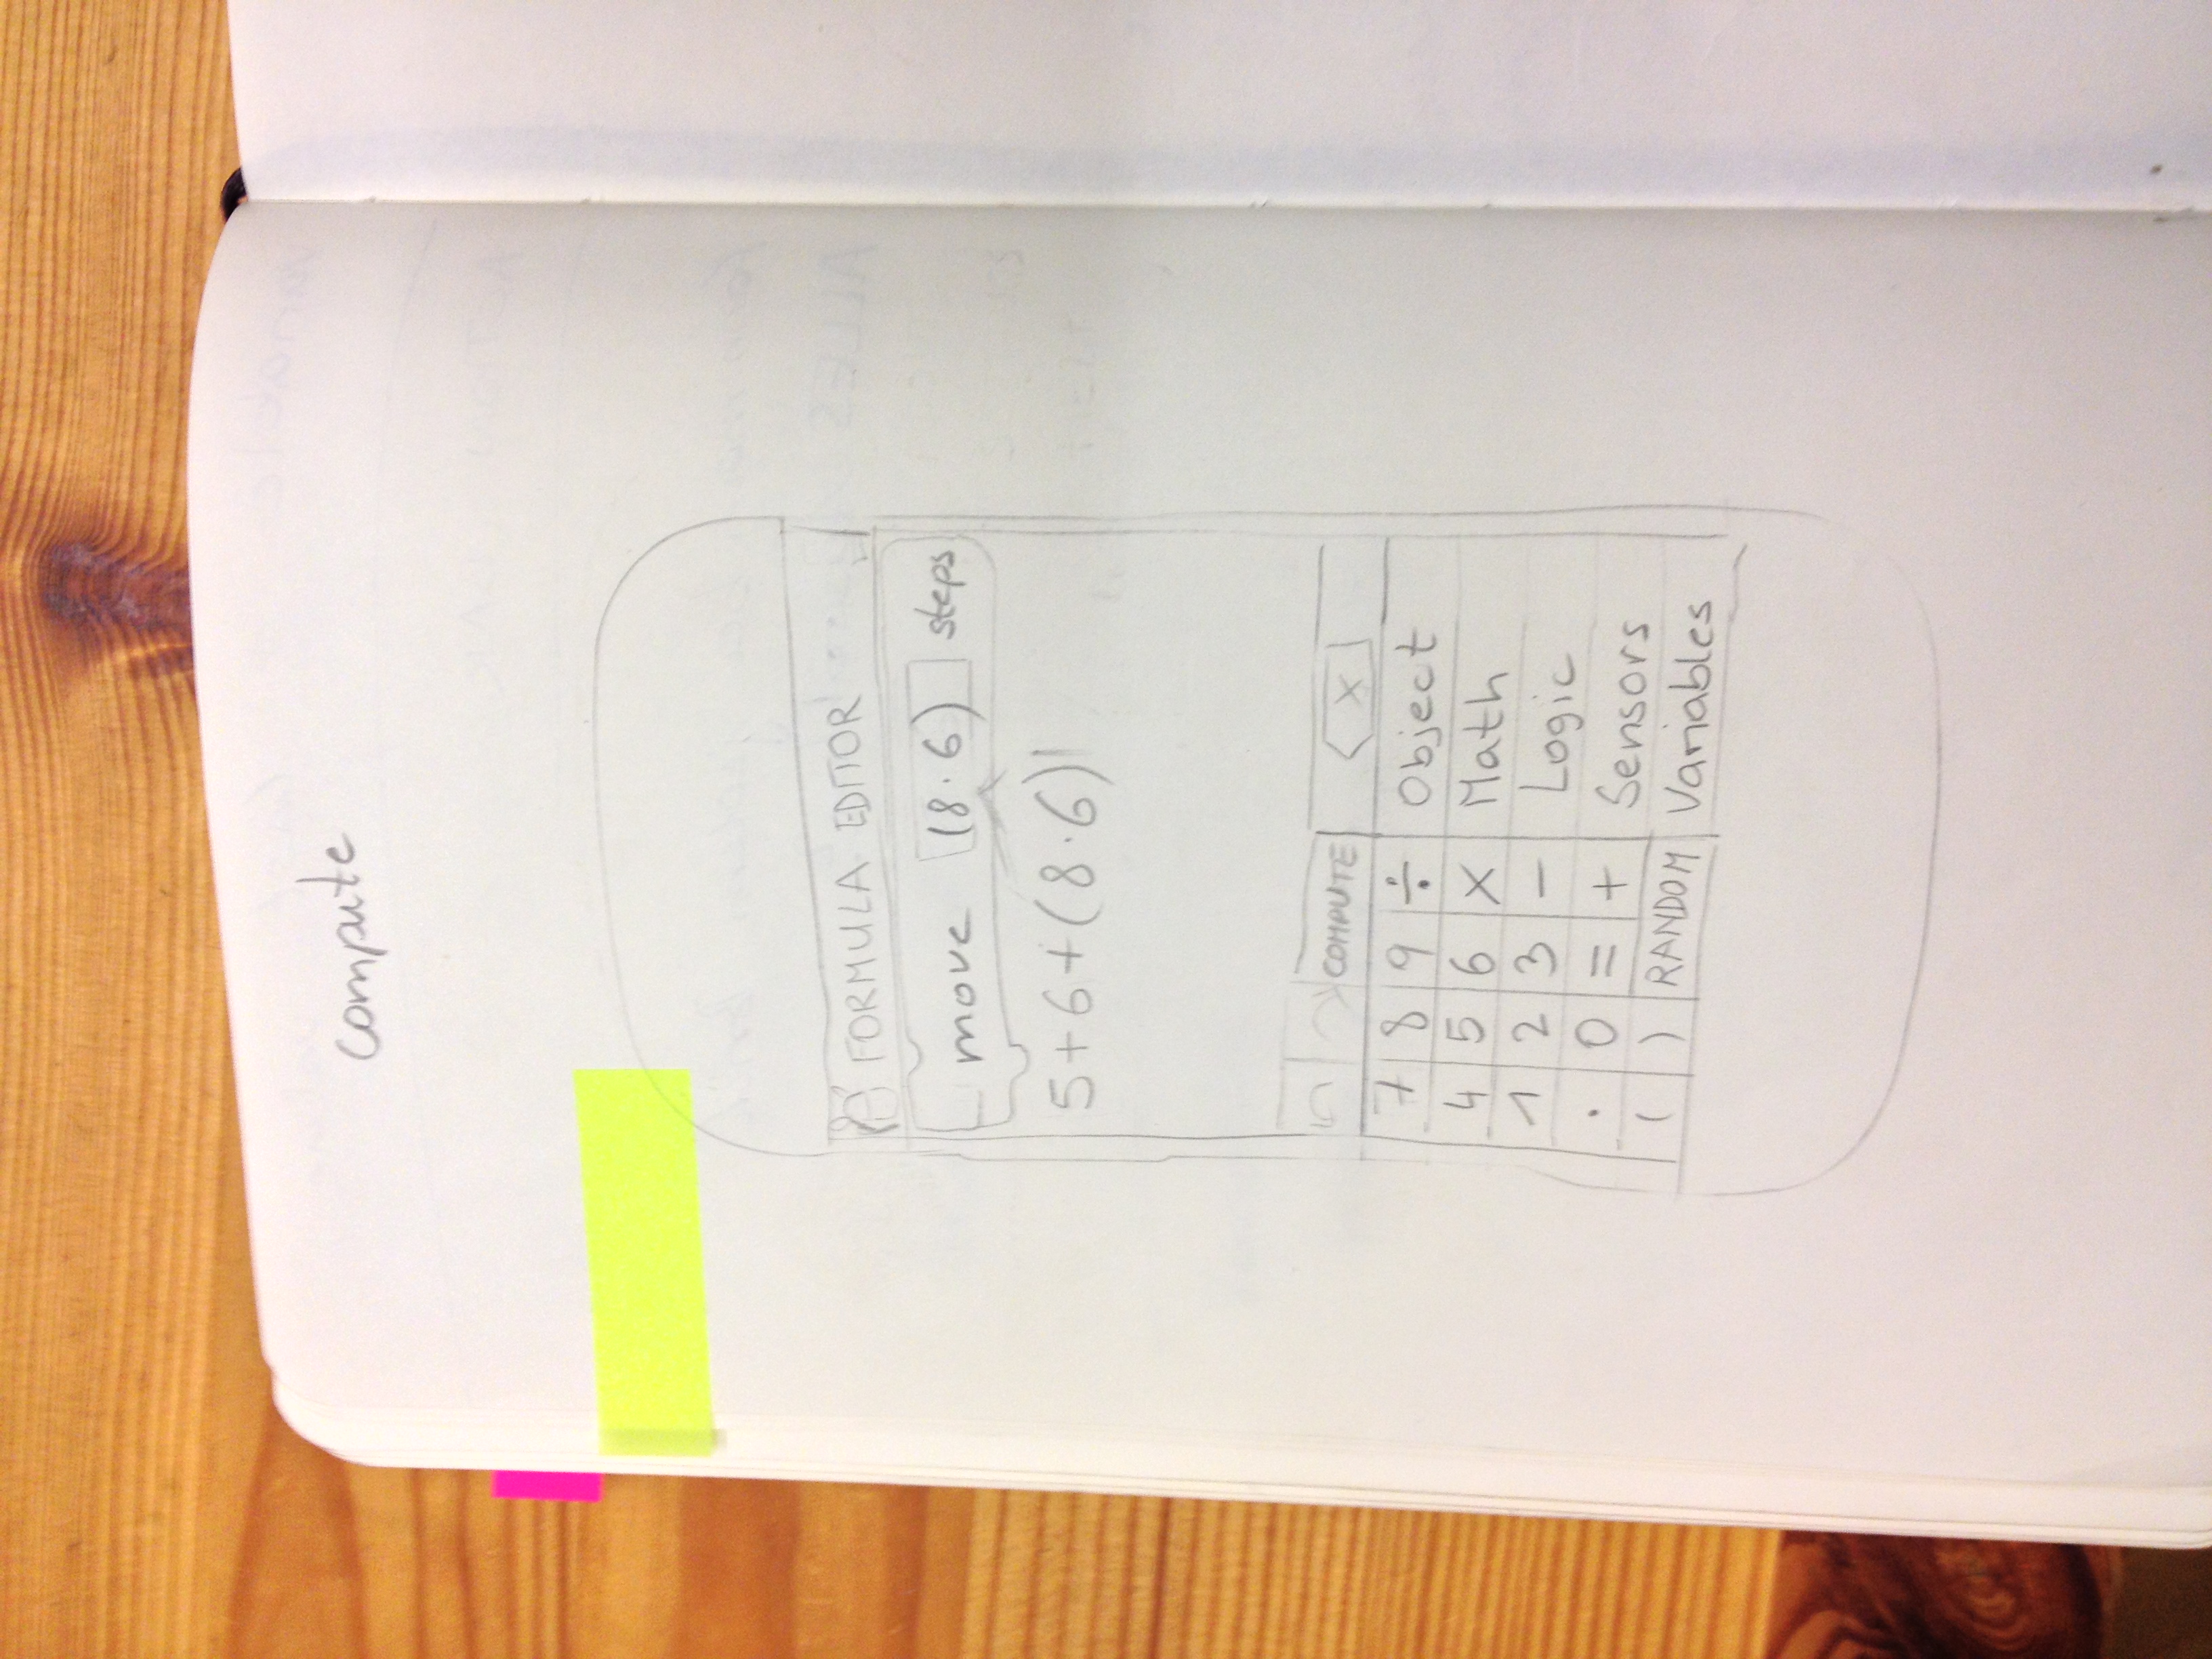 compute
FORMULA EDITOR
move (8·6) steps
5+6+(8·6)|
COMPUTE X
7 8 9 ÷ Object
4 5 6 × Math
1 2 3 − Logic
. 0 = + Sensors
( ) RANDOM Variables